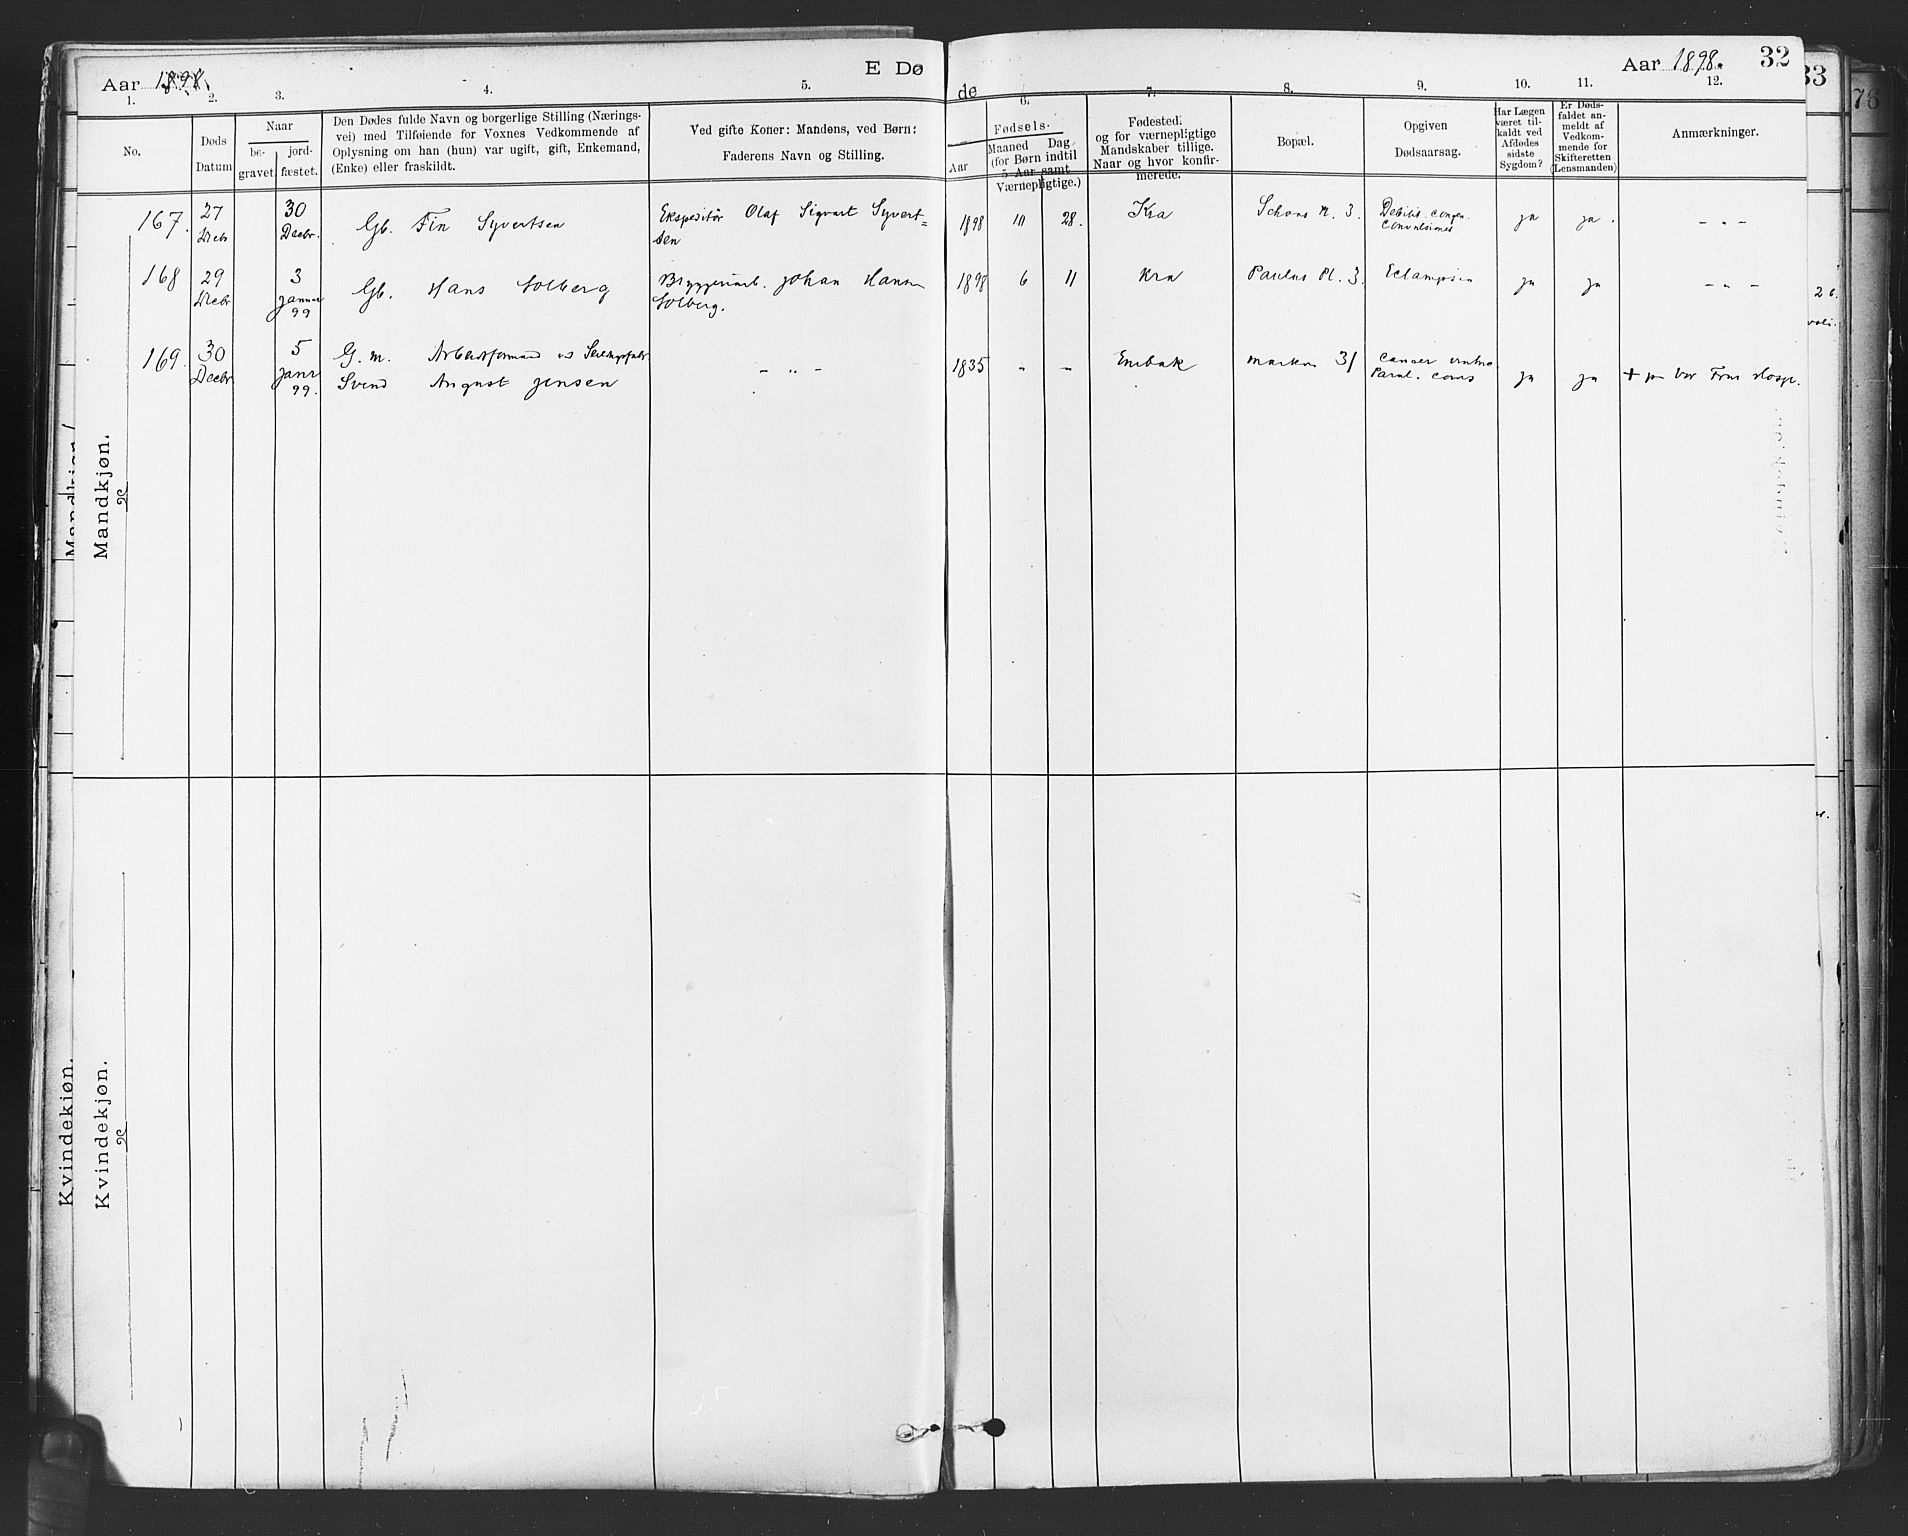 Aar 1898.
E Dø
de
Aar 1898.
32
33
76
1. 2. 3. 4. 5. 6. 7. 8. 9. 10. 11. 12.
No.
Døds
Datum
Naar
be-
gravet.
jord-
fæstet.
Den Dødes fulde Navn og borgerlige Stilling (Nærings-
vei) med Tilføiende for Voxnes Vedkommende af
Oplysning om han (hun) var ugift, gift, Enkemand,
(Enke) eller fraskildt.
Ved gifte Koner: Mandens, ved Børn:
Faderens Navn og Stilling.
Fødsels-
Aar
Maaned Dag
(for Børn indtil
5 Aar samt
Værnepligtige.)
Fødested,
og for værnepligtige
Mandskaber tillige.
Naar og hvor konfir-
merede.
Bopæl.
Opgiven
Dødsaarsag.
Har Lægen
været til-
kaldt ved
Afdødes
sidste
Sygdom?
Er Døds-
faldet an-
meldt af
Vedkom-
mende for
Skifteretten
(Lensmanden)
Anmærkninger.
Mandkjøn.
167. 27 Decbr 30 Decbr. Gb. Fin Syvertsen Ekspeditør Olaf Sigvart Syvert=
sen 1898 10 28. Kra Schous Pl. 3. Debilit. congen.
Convulsiones ja ja. - " -
168 29 Decbr 3 januar 99 Gb. Hans Solberg Bryggeriarb. Johan Hansen
Solberg. 1898 6 11 Kra Paulus Pl. 3. Eclampsia ja ja - " -
169. 30 Decbr 5 janr 99. G. m. Arbeidsformand
Svend August Jensen - " - 1835 " " Markvn 31 Cancer
ja ja + paa Vor Frue Hosp.
Kvindekjøn.
Kvindekjøn.